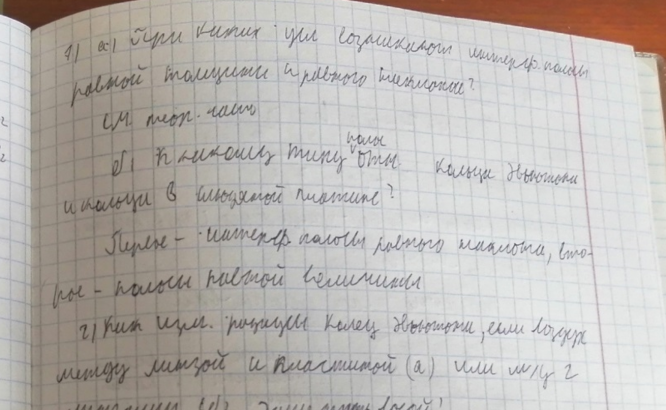 1) а) При каких усл возникают интерф. полосы
равной толщины и равного наклона?
см. теор. часть
б) К какому типу полос отн. кольца Ньютона
и кольца в слюдяной пластине?
Первые – интерф. полосы равного наклона, вто-
рые – полосы равной величины
2) Как изм. радиусы колец Ньютона, если воздух
между линзой и пластиной (а) или м/у 2